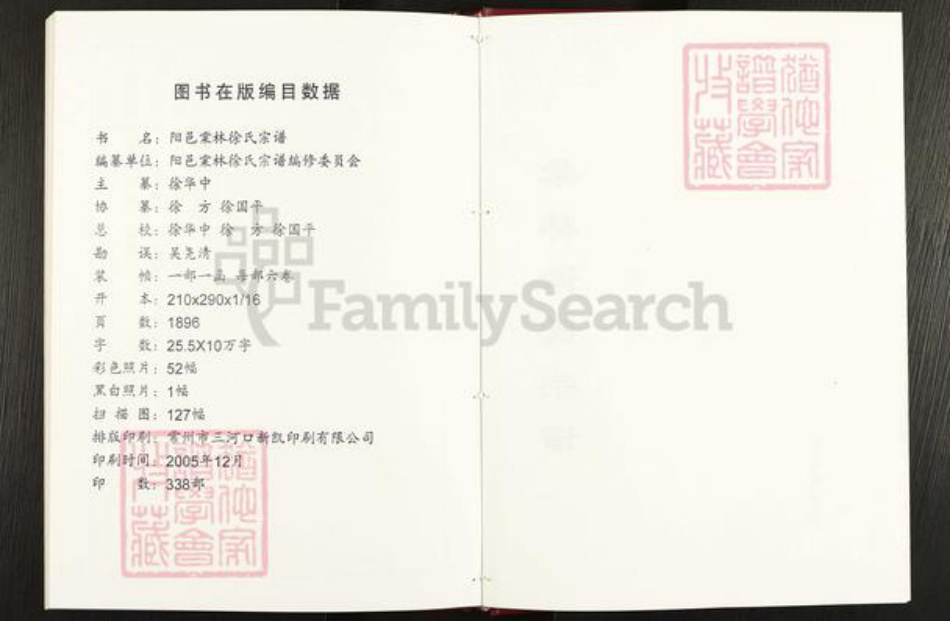 图书在版编目数据
书 名：阳邑棠林徐氏宗谱
编纂单位：阳邑棠林徐氏宗谱编修委员会
主 纂：徐华中
协 纂：徐 方 徐国平
总 校：徐华中 徐 方 徐国平
勘 误：吴尧清
装 帧：一部一函 每部六卷
开 本：210x290x1/16
页 数：1896
字 数：25.5X10万字
彩色照片：52幅
黑白照片：1幅
扫 描 图：127幅
排版印刷：常州市三河口新凯印刷有限公司
印刷时间：2005年12月
印 数：338部
FamilySearch